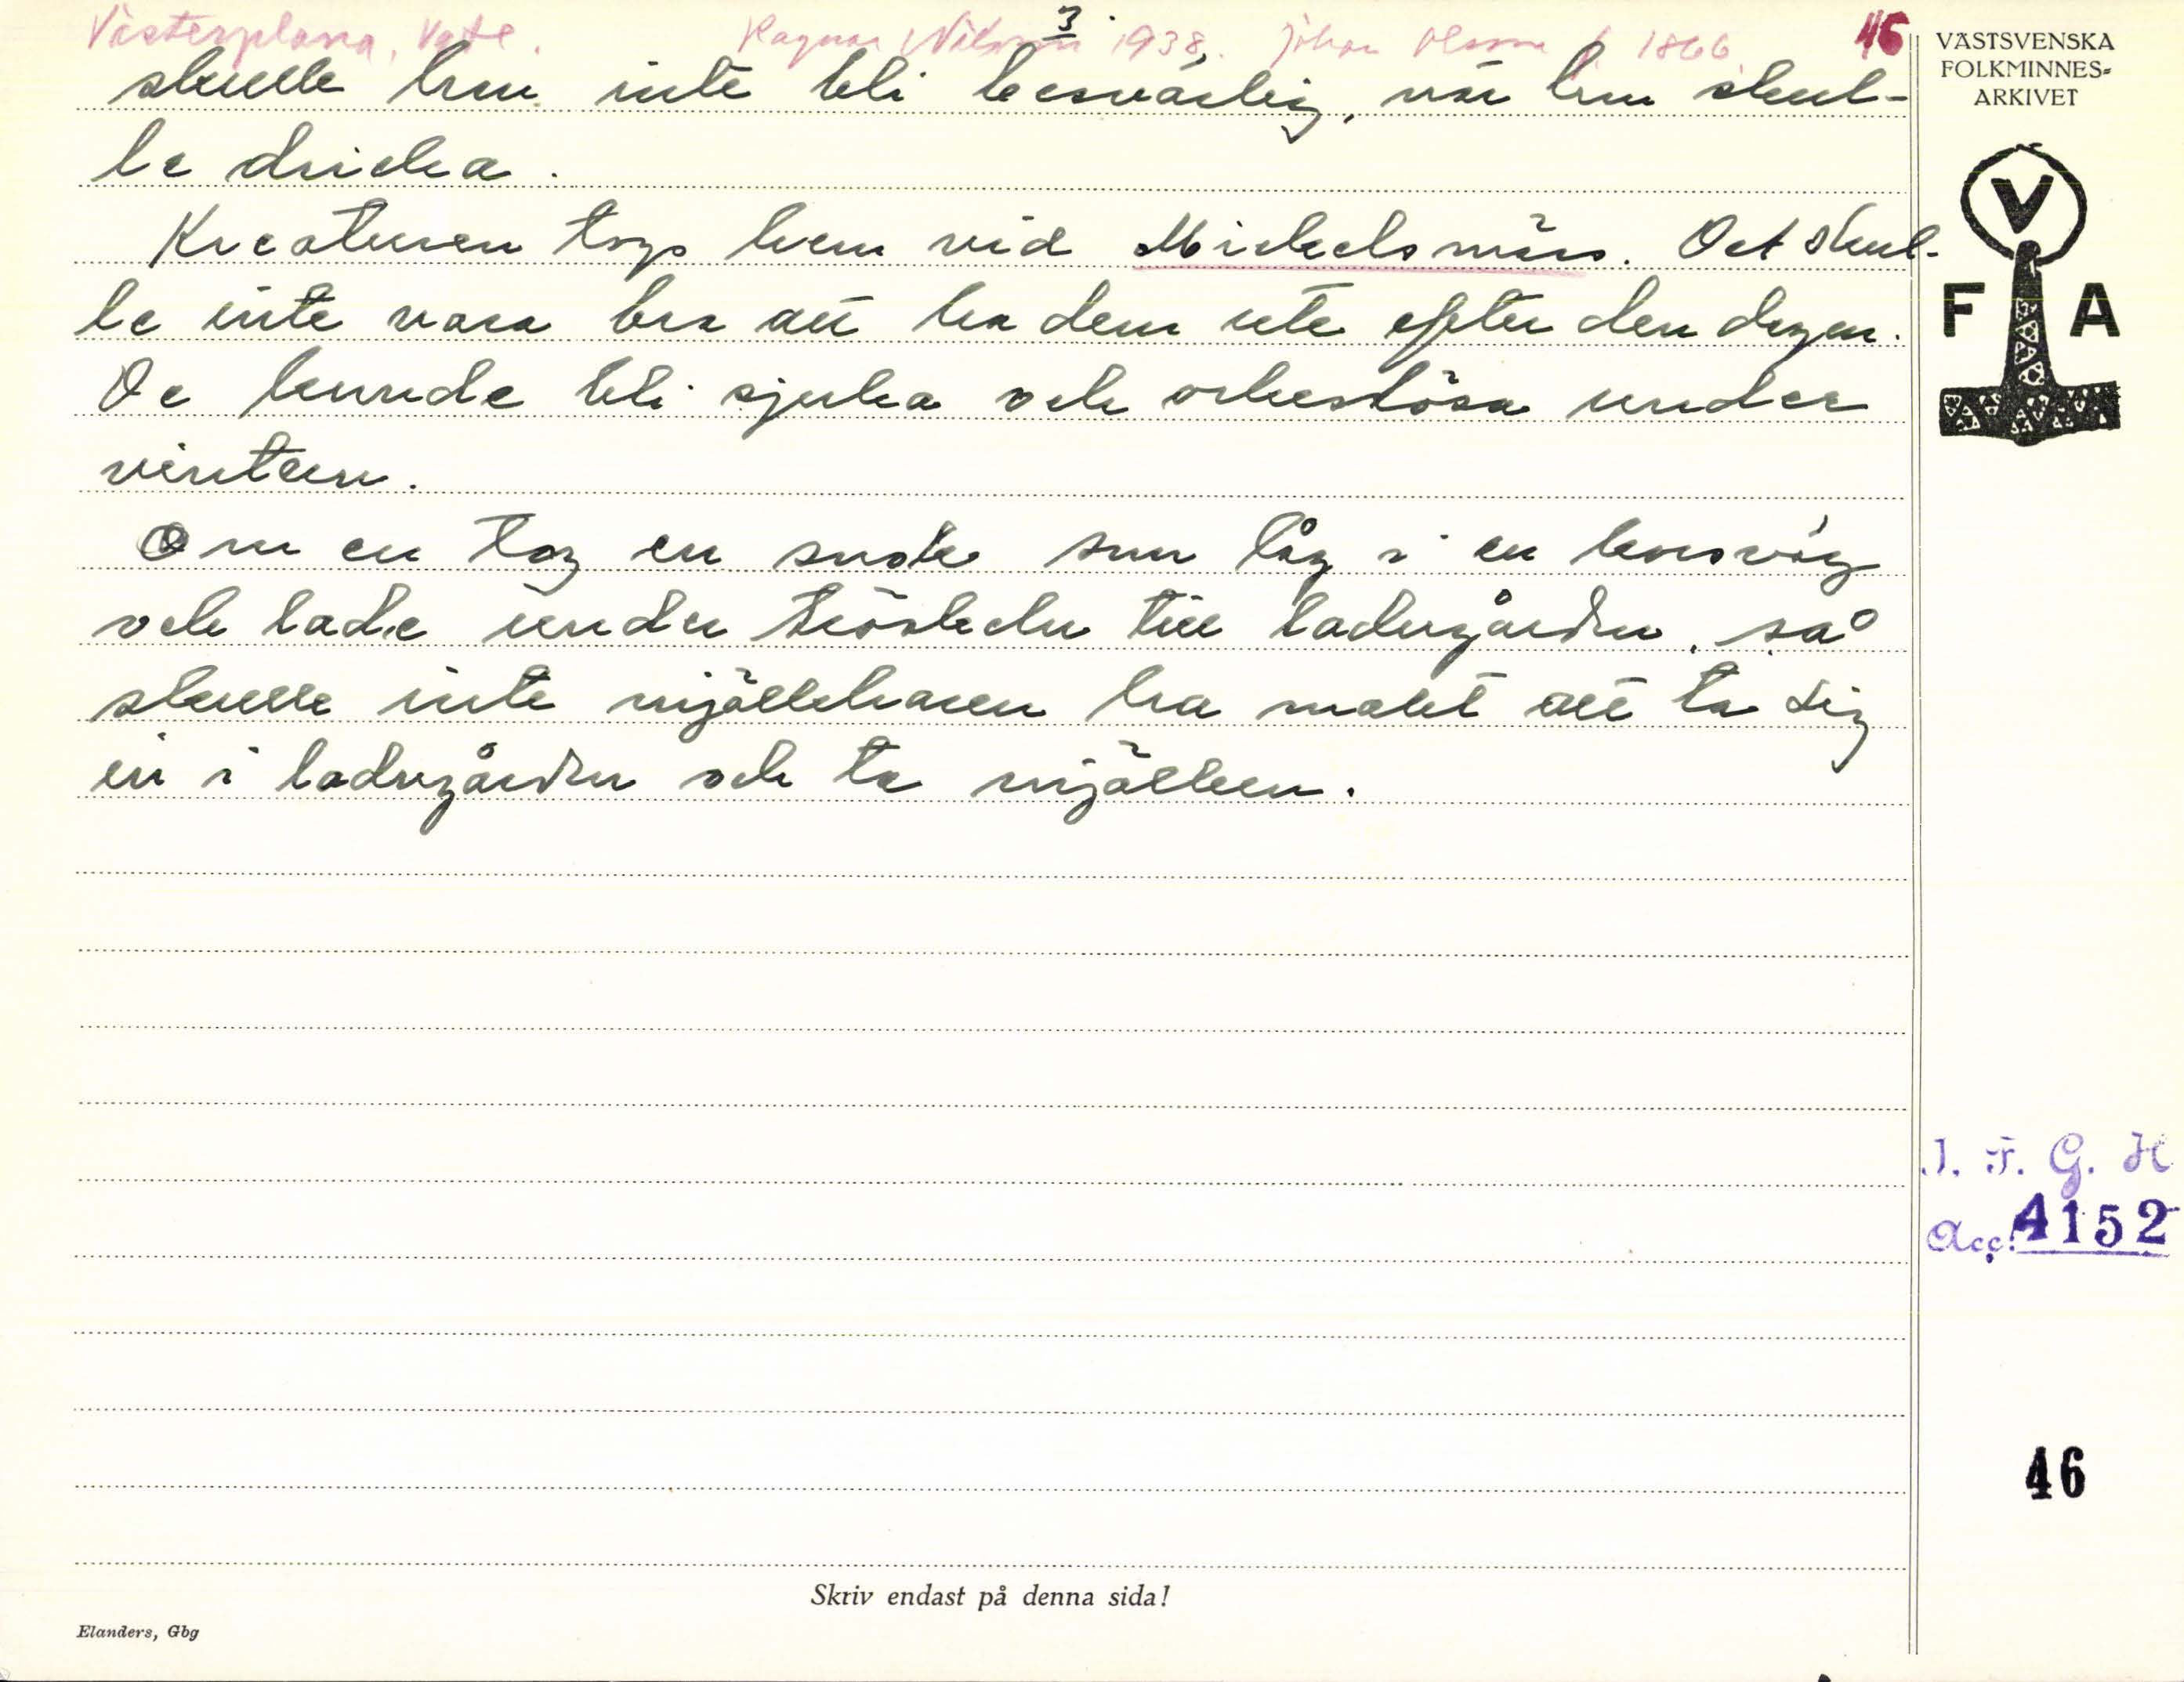 Västerplana, Vgtl. Ragnar Nilsson 1938. Johan Olsson f. 1866. 46
3.
skulle hon inte bli besvärlig, när hon skul-
le dricka.
Kreaturen togs hem vid Mickelsmäss. Det skul-
le inte vara bra att ha dem ute efter den dagen.
De kunde bli sjuka och orkeslösa under
vintern.
Om en tog en snok som låg i en korsväg
och lade under tröskeln till ladugården, så
skulle inte mjölkharen ha makt att ta sig
in i ladugården och ta mjölken.
VÄSTSVENSKA
FOLKMINNES-
ARKIVET
V
F A
I. F. G. H
Acc. 4152
46
Skriv endast på denna sida!
Elanders, Gbg